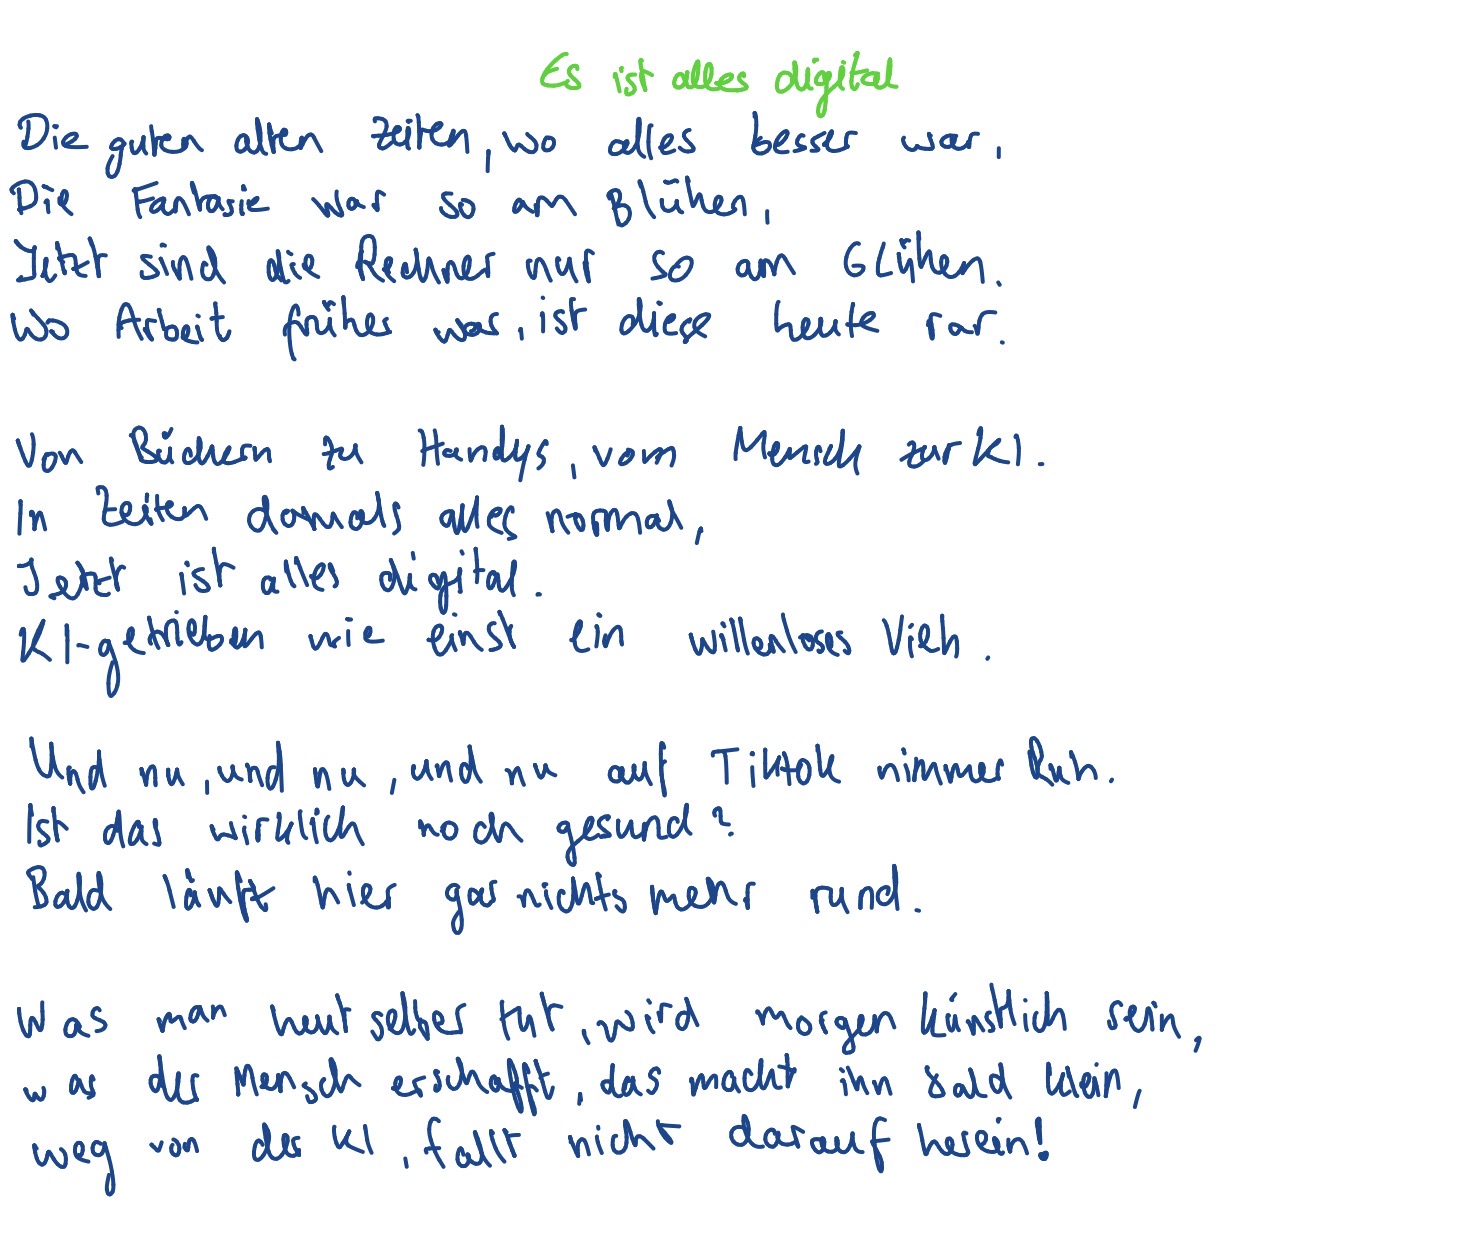 Es ist alles digital
Die guten alten Zeiten, wo alles besser war,
Die Fantasie war so am Blühen,
Jetzt sind die Rechner nur so am Glühen.
Wo Arbeit früher war, ist diese heute rar.
Von Büchern zu Handys, vom Mensch zur KI.
In Zeiten damals alles normal,
Jetzt ist alles digital.
KI-getrieben wie einst ein willenloses Vieh.
Und nu, und nu, und nu auf Tiktok nimmer Ruh.
Ist das wirklich noch gesund?
Bald läuft hier gar nichts mehr rund.
Was man heut selber tut, wird morgen künstlich sein,
was der Mensch erschafft, das macht ihn bald klein,
weg von der KI, fallt nicht darauf herein!